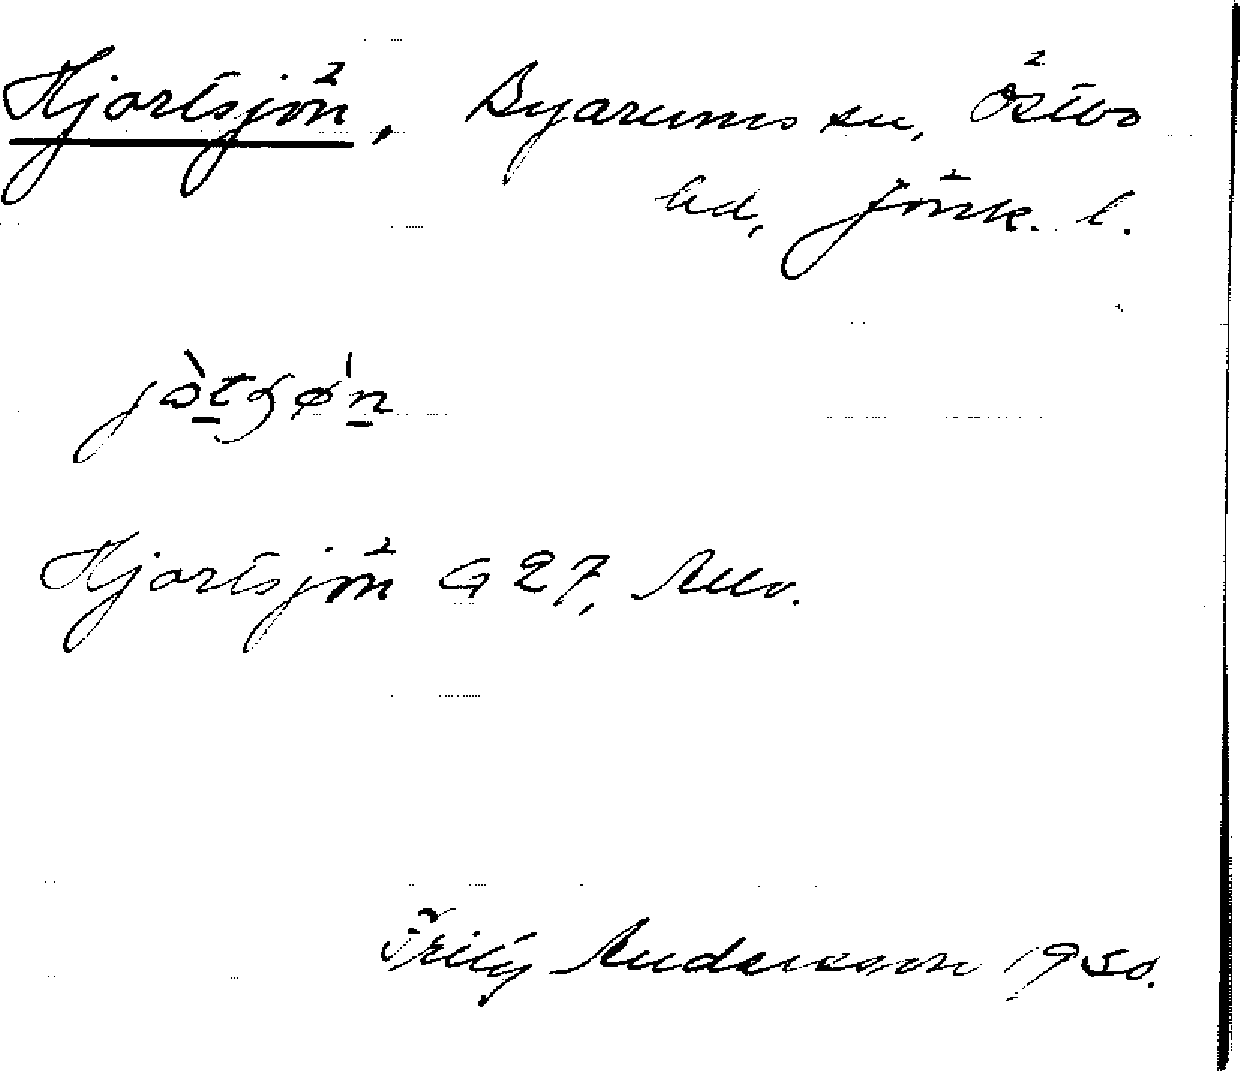 Hjortsjön, Byarums sn, Östbo
hd, Jönk. l.
Hjortsjön G 27,
Fritz Andersson 1950.